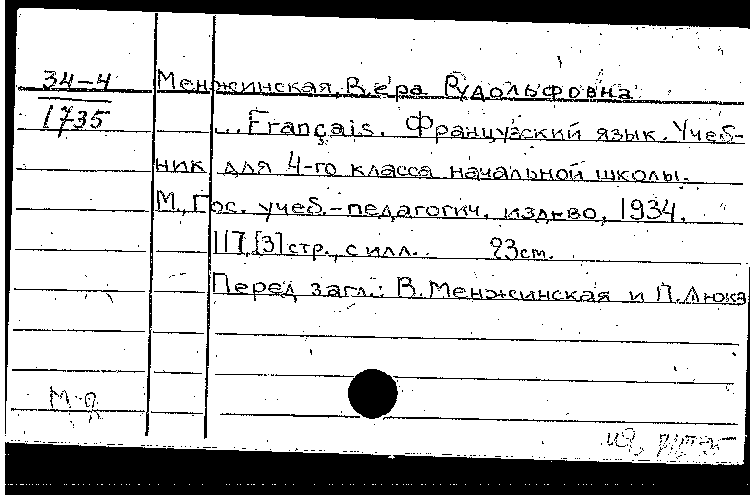 34-4 Менжинская, Вера Рудольфовна
1735 ... Français. Французский язык. Учеб-
ник для 4-го класса начальной школы.
М., Гос. учеб.-педагогич. изд-во, 1934.
117, [3] стр., с илл. 23 см.
Перед загл.: В. Менжинская и П. Люка
М-Я